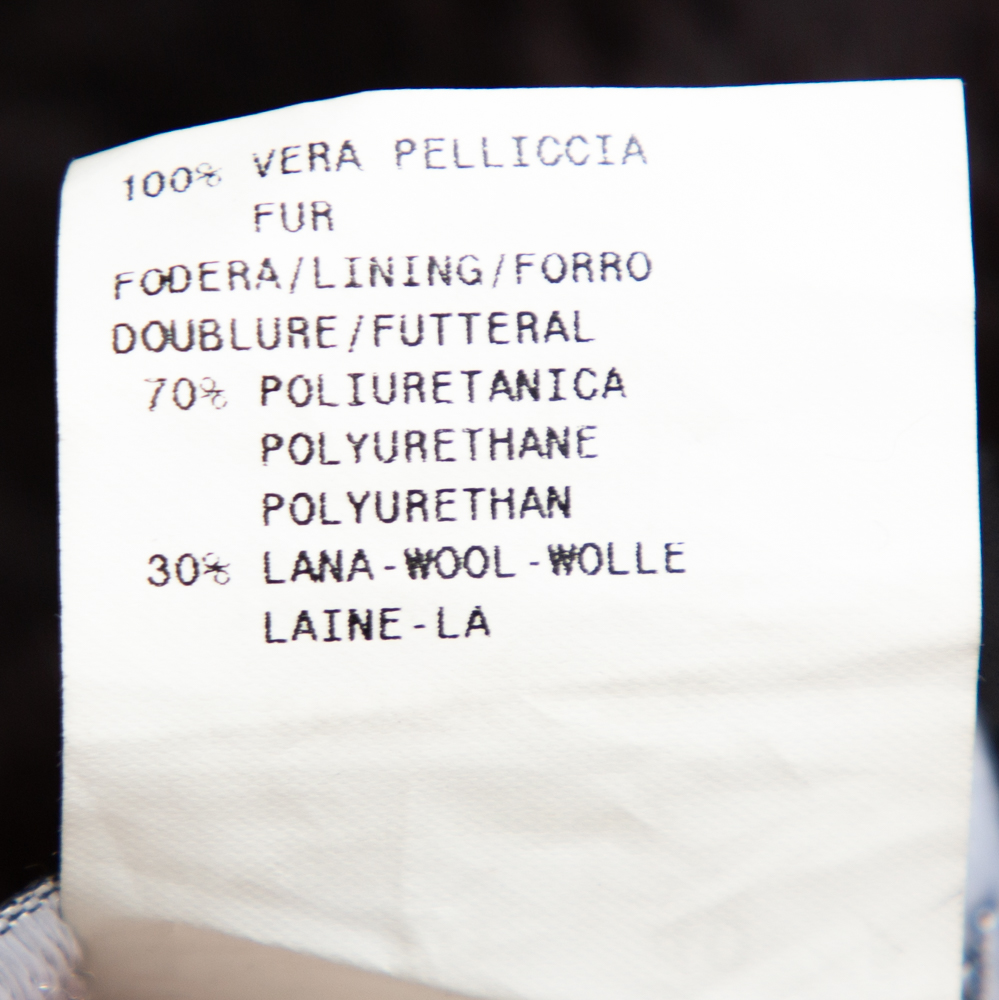 100% VERA PELLICCIA
FUR
FODERA/LINING/FORRO
DOUBLURE/FUTTERAL
70% POLIURETANICA
POLYURETHANE
POLYURETHAN
30% LANA-WOOL-WOLLE
LAINE-LA